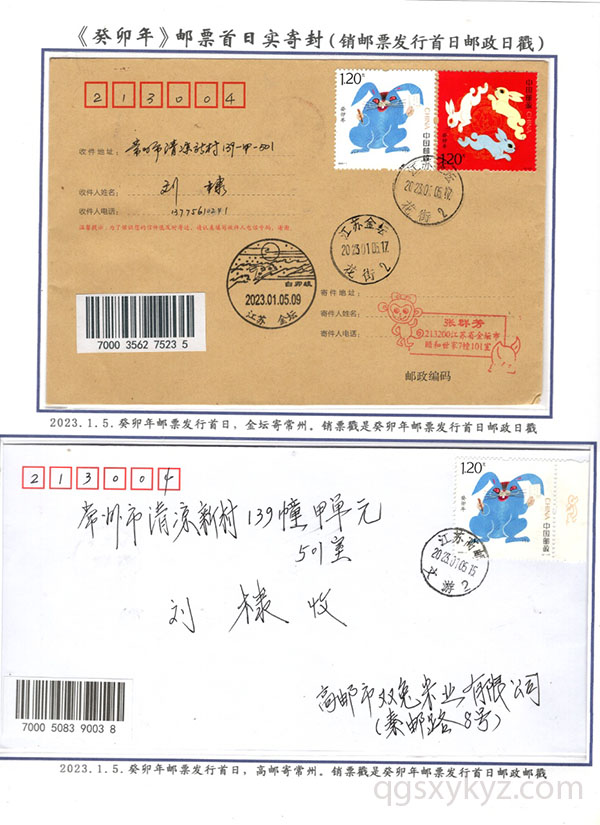 《癸卯年》邮票首日实寄封(销邮票发行首日邮政日戳)
213004
120分
癸卯年
CHINA 中国邮政
中国邮政 CHINA
120分
收件地址:
常州市清凉新村139-甲-501
收件人姓名:
刘棣
收件人电话:
江苏金坛
2023.01.05.17
花街2
江苏金坛
2023.01.05.17
花街2
白卯破
2023.01.05.09
江苏 金坛
寄件地址:
寄件人姓名:
寄件人电话:
张群芳
213200江苏省金坛市
颐和世家7幢101室
邮政编码
7000 3562 7523 5
2023.1.5.癸卯年邮票发行首日,金坛寄常州。销票戳是癸卯年邮票发行首日邮政日戳
213004
120分
癸卯年
CHINA 中国邮政
常州市清凉新村139幢甲单元
501室
刘棣 收
2023.01.05.15
7000 5083 9003 8
高邮市双兔米业有限公司
(秦邮路8号)
2023.1.5.癸卯年邮票发行首日,高邮寄常州。销票戳是癸卯年邮票发行首日邮政邮戳
qgsxykyz.com